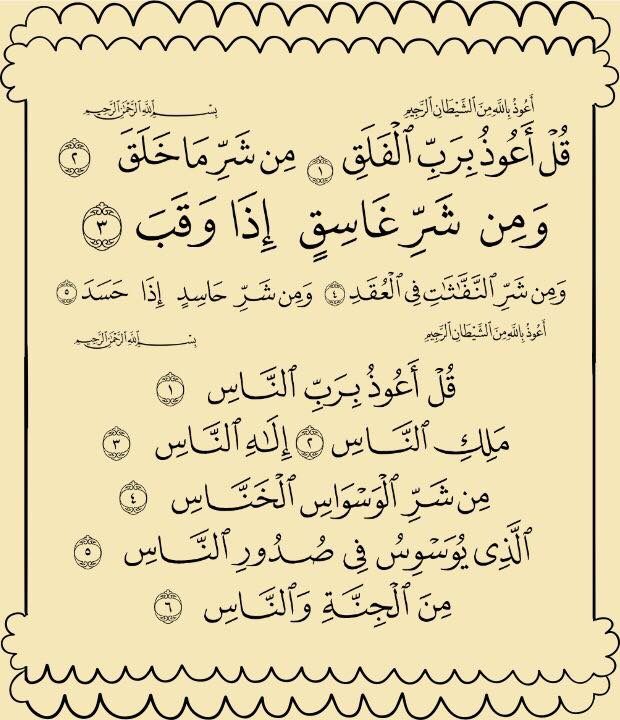 أَعُوذُ بِاللَّهِ مِنَ الشَّيْطَانِ الرَّجِيمِ بِسْــــــمِ ٱللَّهِ ٱلرَّحْمَٰنِ ٱلرَّحِيمِ
قُلْ أَعُوذُ بِرَبِّ ٱلْفَلَقِ ١ مِن شَرِّ مَا خَلَقَ ٢
وَمِن شَرِّ غَاسِقٍ إِذَا وَقَبَ ٣
وَمِن شَرِّ ٱلنَّفَّٰثَٰتِ فِى ٱلْعُقَدِ ٤ وَمِن شَرِّ حَاسِدٍ إِذَا حَسَدَ ٥
أَعُوذُ بِاللَّهِ مِنَ الشَّيْطَانِ الرَّجِيمِ بِسْــــــمِ ٱللَّهِ ٱلرَّحْمَٰنِ ٱلرَّحِيمِ
قُلْ أَعُوذُ بِرَبِّ ٱلنَّاسِ ١
مَلِكِ ٱلنَّاسِ ٢ إِلَٰهِ ٱلنَّاسِ ٣
مِن شَرِّ ٱلْوَسْوَاسِ ٱلْخَنَّاسِ ٤
ٱلَّذِى يُوَسْوِسُ فِى صُدُورِ ٱلنَّاسِ ٥
مِنَ ٱلْجِنَّةِ وَٱلنَّاسِ ٦